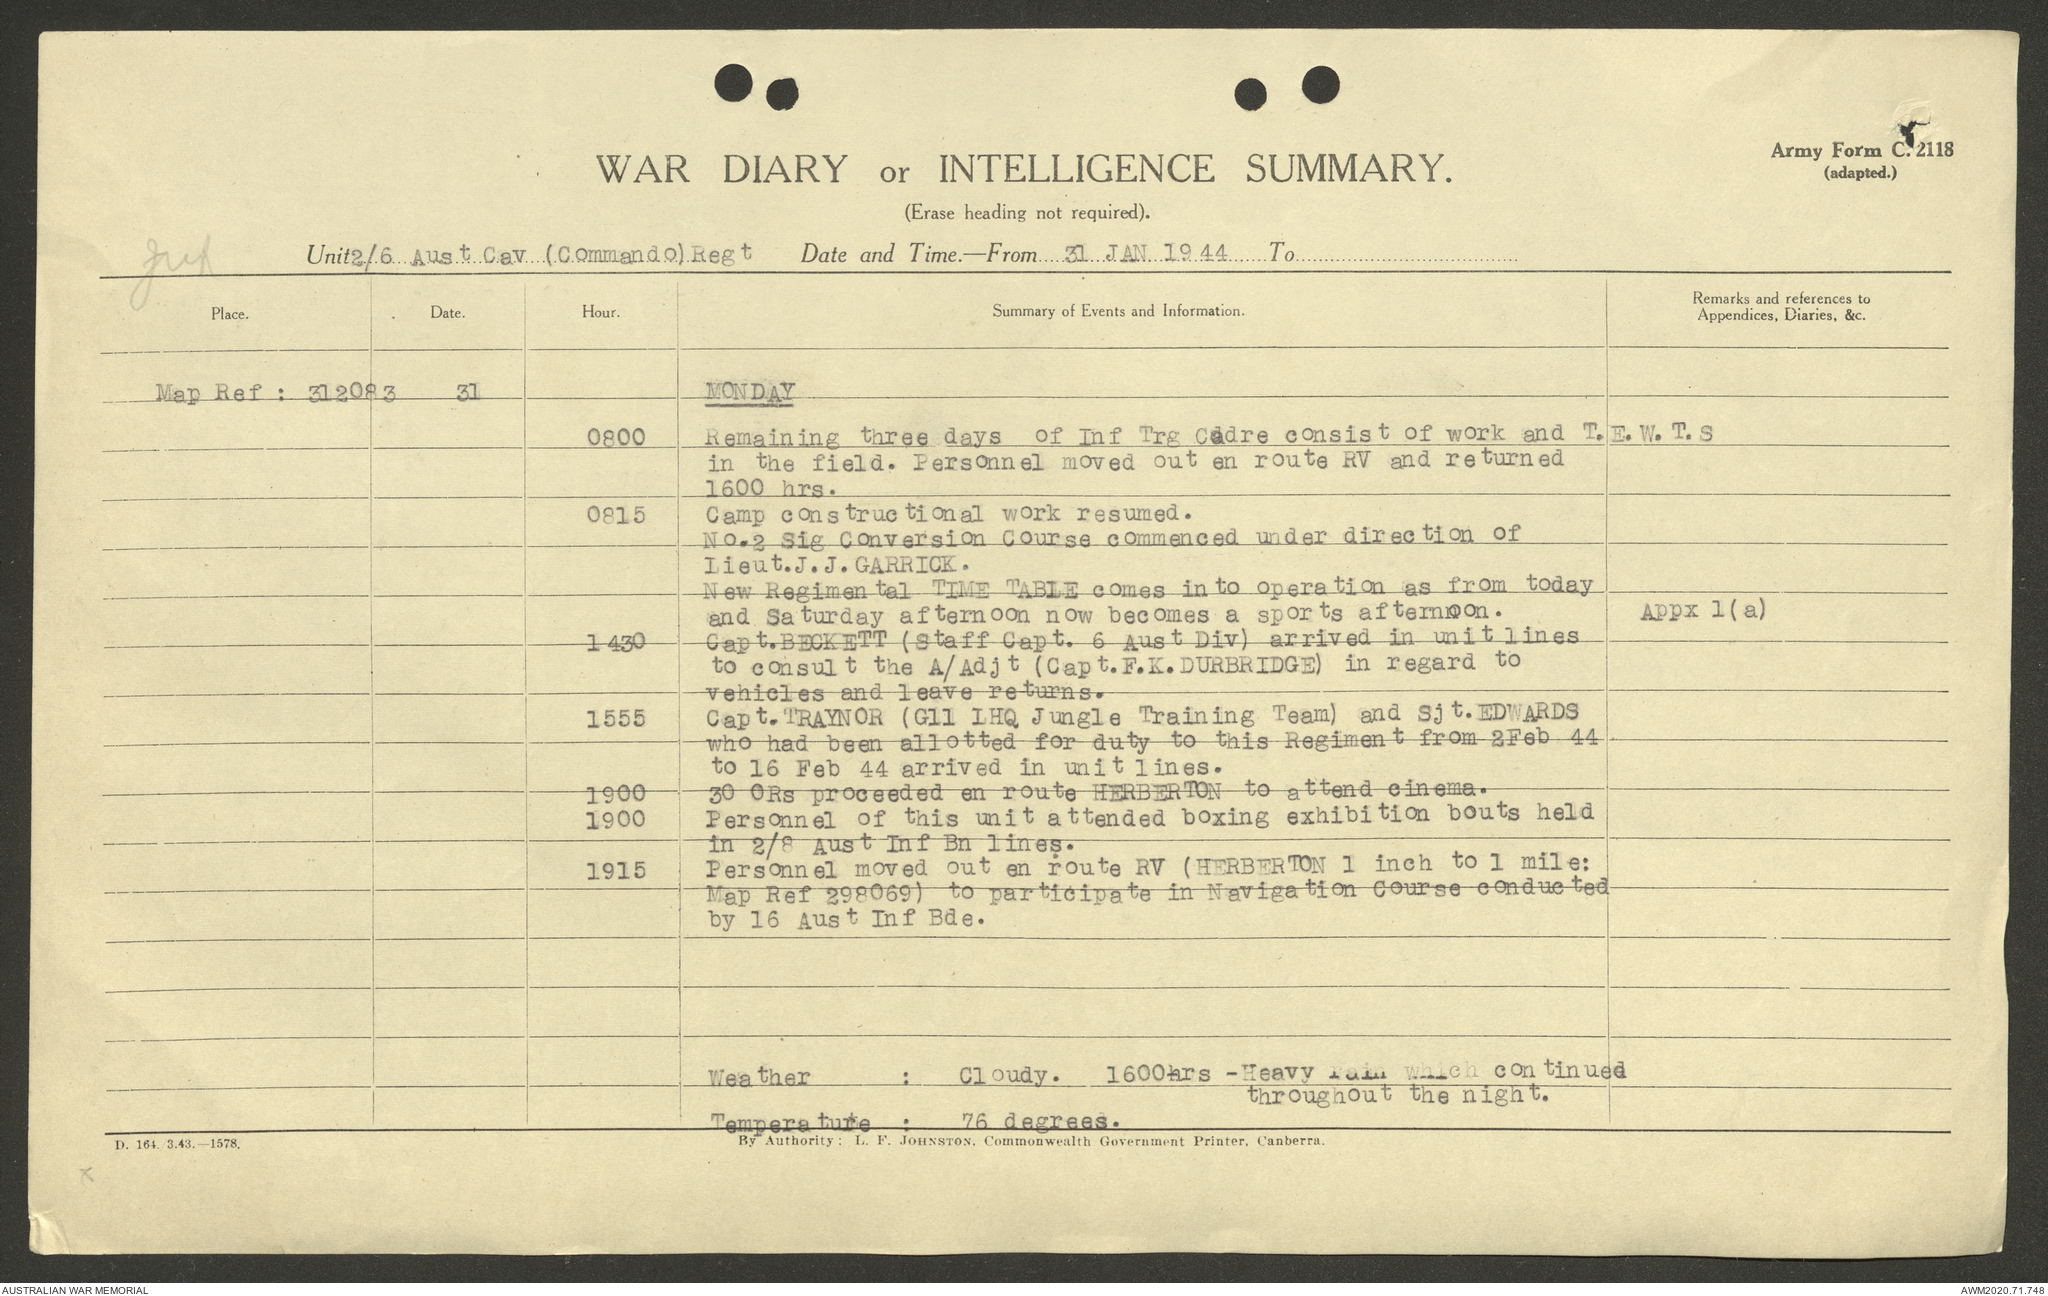 WAR DIARY or INTELLIGENCE SUMMARY.
Army Form C. 2118
(adapted.)
(Erase heading not required).
Unit 2/6 Aust Cav (Commando) Regt Date and Time.—From 31 JAN 1944 To
Place. Date. Hour. Summary of Events and Information. Remarks and references to
Appendices, Diaries, &c.
Map Ref : 312083 31 MONDAY
0800 Remaining three days of Inf Trg Cadre consist of work and T.E.W.T.S
in the field. Personnel moved out en route RV and returned
1600 hrs.
0815 Camp constructional work resumed.
No.2 Sig Conversion Course commenced under direction of
Lieut.J.J.GARRICK.
New Regimental TIME TABLE comes into operation as from today
and Saturday afternoon now becomes a sports afternoon. Appx 1(a)
1430 Capt.BECKETT (Staff Capt. 6 Aust Div) arrived in unit lines
to consult the A/Adjt (Capt.F.K.DURBRIDGE) in regard to
vehicles and leave returns.
1555 Capt.TRAYNOR (G11 LHQ Jungle Training Team) and Sjt.EDWARDS
who had been allotted for duty to this Regiment from 2Feb 44
to 16 Feb 44 arrived in unit lines.
1900 30 ORs proceeded en route HERBERTON to attend cinema.
1900 Personnel of this unit attended boxing exhibition bouts held
in 2/8 Aust Inf Bn lines.
1915 Personnel moved out en route RV (HERBERTON 1 inch to 1 mile:
Map Ref 298069) to participate in Navigation Course conducted
by 16 Aust Inf Bde.
Weather : Cloudy. 1600hrs -Heavy rain which continued
throughout the night.
Temperature : 76 degrees.
D. 164. 3.43.—1578.
By Authority: L. F. JOHNSTON, Commonwealth Government Printer, Canberra.
AUSTRALIAN WAR MEMORIAL
AWM2020.71.748